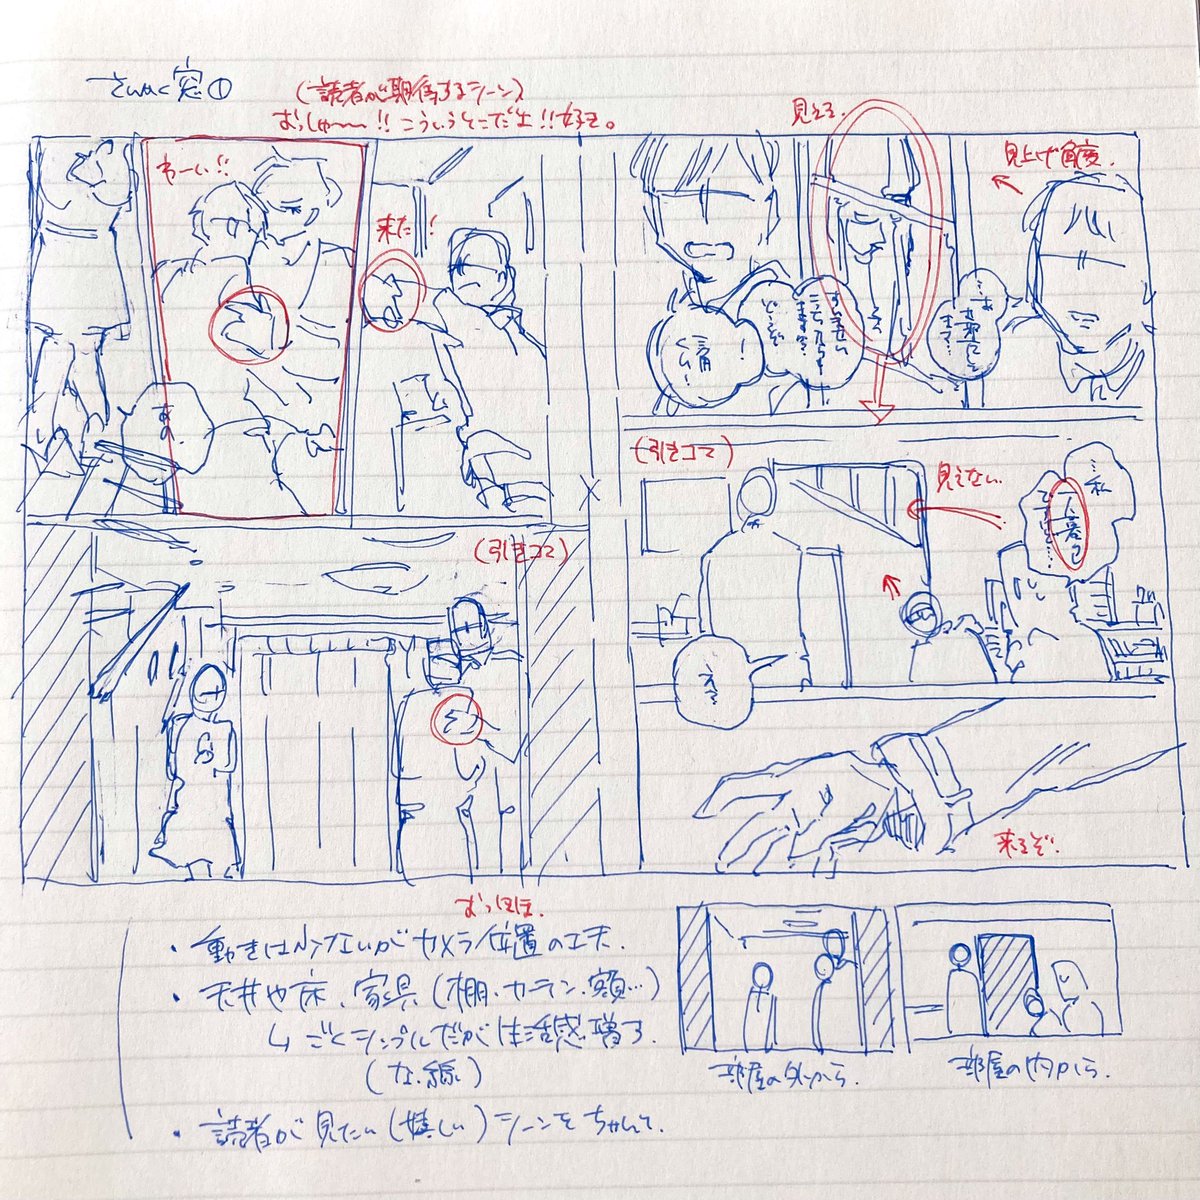 さんかく窓①
(読者が期待するシーン)
おっしゃ〜〜!!こういうとこだよ!!好き。
見える。
見上げ角度。
わーい!!
来た!
あの
すいません
こちらも
どうぞ
(引きコマ)
見えない
…私
一人暮し
です…
え?
(引きコマ)
来るぞ。
おっほほ。
・動きは少ないがカメラ位置の工夫。
・天井や床、家具(棚、カーテン、額…)
↳ごくシンプルだが生活感増す
(な、線)
・読者が見たい(嬉しい)シーンをちゃんと。
部屋の外から。
部屋の内から。